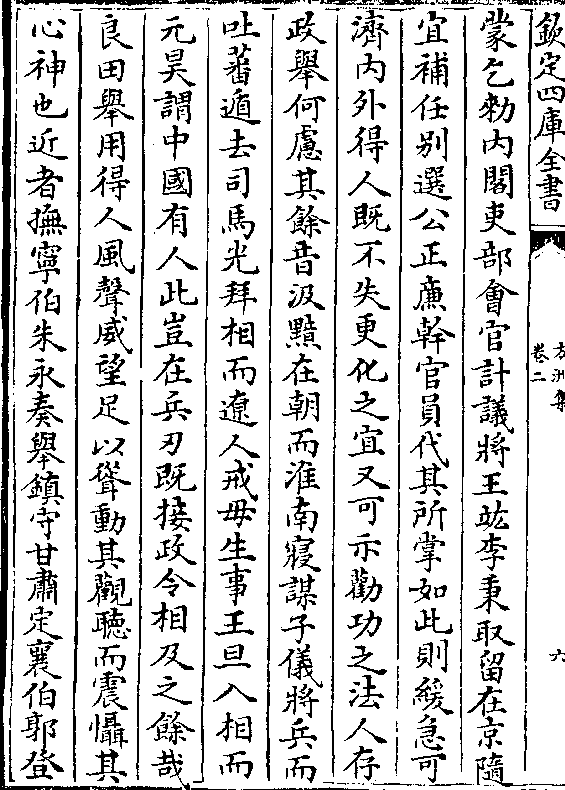 欽定四庫全書
方洲集
卷二
六
蒙乞勑内閣吏部會官計議將王竑李秉取留在京隨
宜補任别選公正亷幹官員代其所掌如此則緩急可
濟内外得人既不失更化之宜又可示勸功之法人存
政舉何慮其餘昔汲黯在朝而淮南寢謀子儀將兵而
吐蕃遁去司馬光拜相而遼人戒毋生事王旦入相而
元昊謂中國有人此豈在兵刃既接政令相及之餘哉
良田舉用得人風聲威望足以聳動其觀聽而震懾其
心神也近者撫寧伯朱永奏舉鎮守甘肅定襄伯郭登